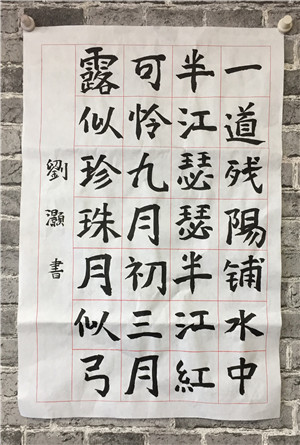 一道残陽铺水中
半江瑟瑟半江紅
可怜九月初三月
露似珍珠月似弓
劉灝書